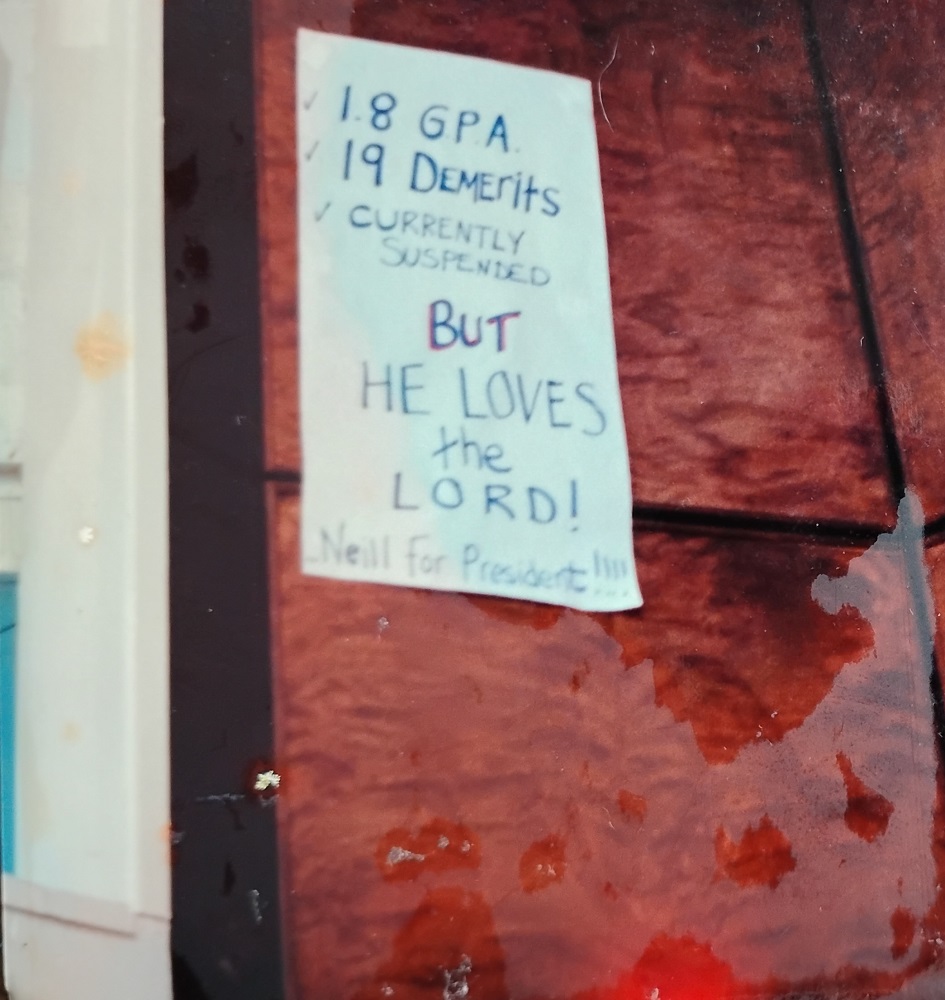 ✓ 1.8 G.P.A.
✓ 19 DEMErits
✓ CURRENTLY
SUSPENDED
BUT
HE LOVES
the
LORD!
Neill for President!!!!